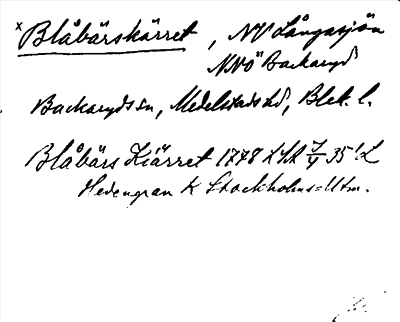 x Blåbärskärret, NV Långasjön
NNÖ Backaryd
Backaryds sn, Medelstads hd, Blek. l.
Blåbärs Kiärret 1778 LSA 35:1 L
Hedengran K Stockholms=Utm.